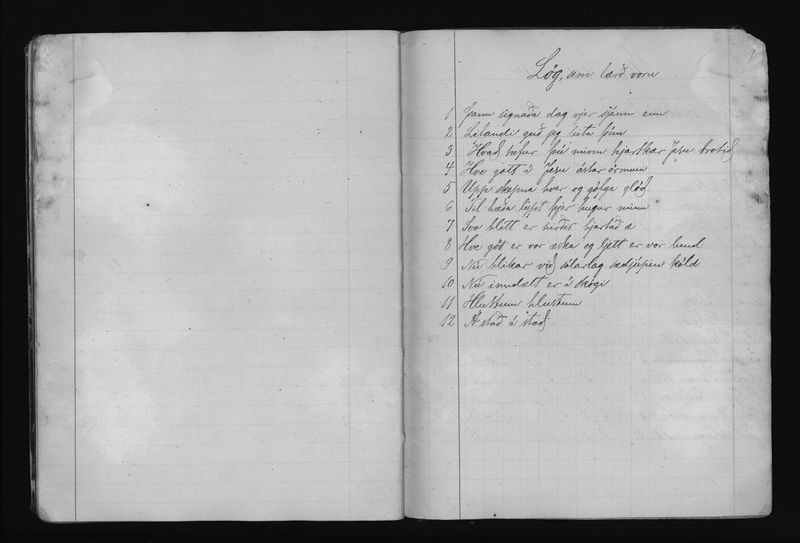 Løg, sem lærð voru
1 Þann signaða dag vjer sjáum enn
2 Lifandi guð jeg leita þín
3 Hvað hefur þú minn hjartkær Jesu brotið
4 Hve gott í Jesu ástar örmum
5 Upp skepna hver og göfga glöð
6 Til hæða lypt þjer hugur minn
7 Svo blítt er hirðis hjartað
8 Hve góð er vor æska og ljett er vor lund
9 Nú blikar við sólarlag sædjúpin köld
10 Nú inndælt er í skógi
11 Hlustum hlustum
12 Á stað á stað